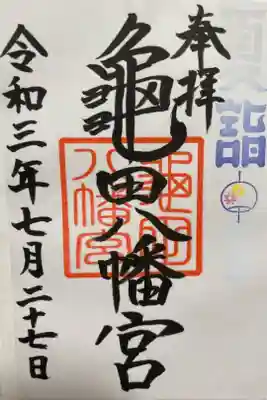 夏詣
奉拝
亀田八幡宮
亀田八幡宮
令和三年七月二十七日